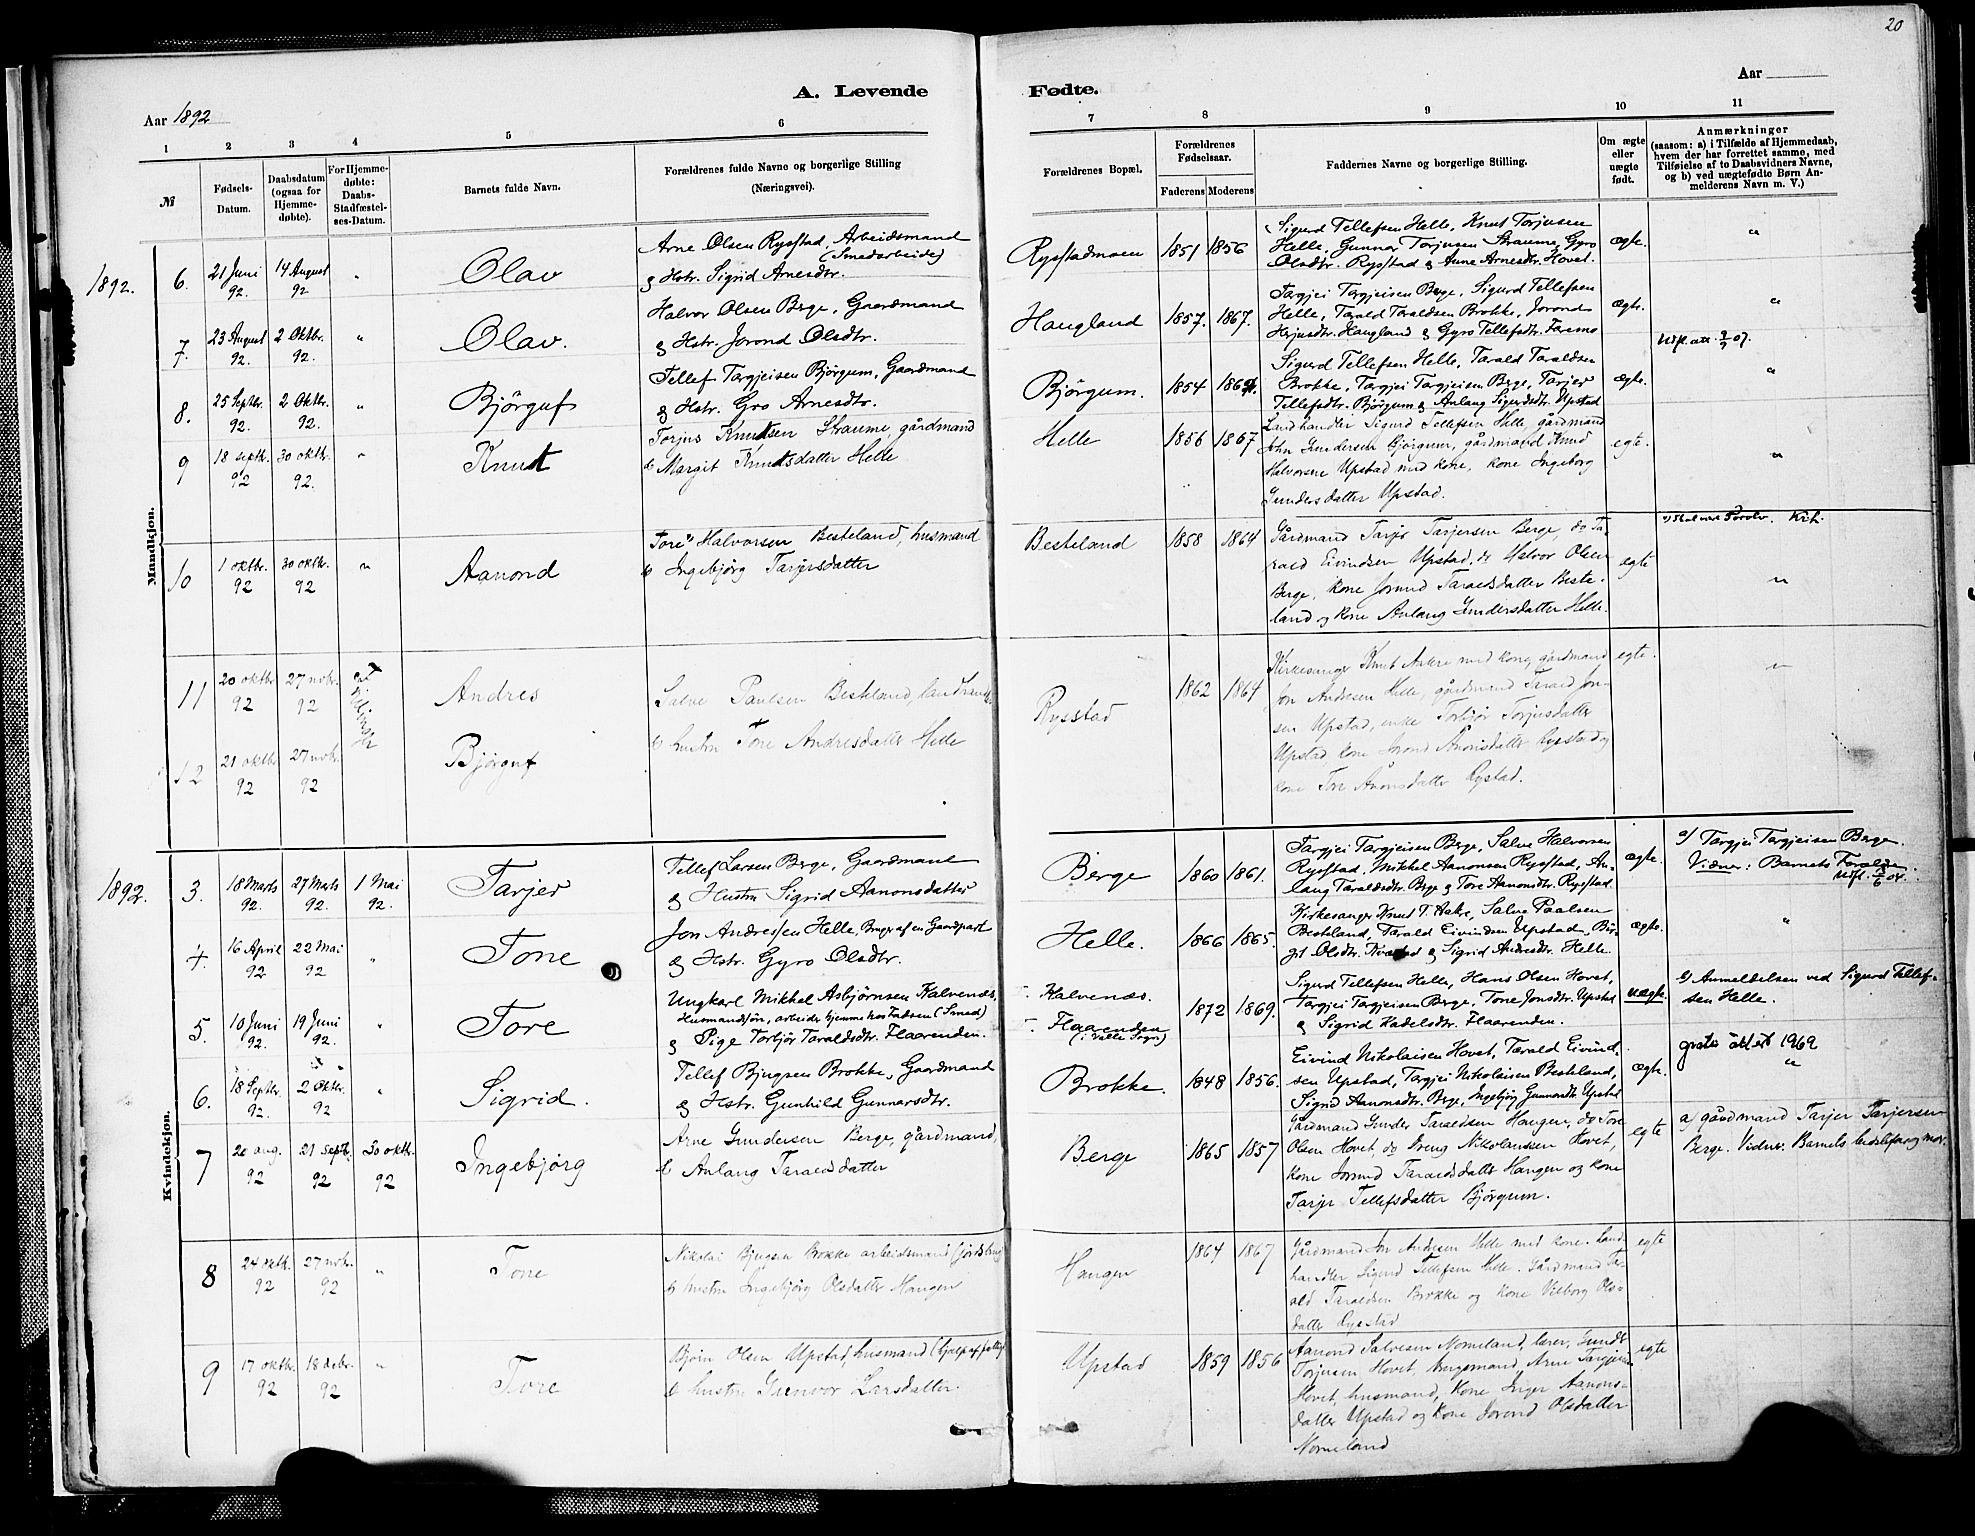 20
A. Levende Fødte.
Aar 1892
Aar
1 2 3 4 5 6 7 8 9 10 11
№
Fødsels-Datum.
Daabsdatum (ogsaa for Hjemmedøbte).
For Hjemmedøbte: Daabs-Stadfæstelses-Datum.
Barnets fulde Navn.
Forældrenes fulde Navne og borgerlige Stilling (Næringsvei).
Forældrenes Bopæl.
Forældrenes Fødselsaar.
Faderens Moderens
Faddernes Navne og borgerlige Stilling.
Om ægte eller uægte født.
Anmærkninger
(saasom: a) i Tilfælde af Hjemmedaab,
hvem der har forrettet samme, med
Tilføielse af to Daabsvidners Navne,
og b) ved uægtefødte Børn Anmelderens Navn m. V.)
Mandkjøn.
1892.
6. 21 Juni 92. 14 August 92 " Olav
Arne Olsen Rysstad, Arbeidsmand
(Smedarbeide)
& Hstr. Sigrid Arnesdtr.
Rysstadmoen 1851 1856
Sigurd Tellefsen Helle, Knut Torjusen
Helle, Gunnar Torjusen Straume, Gyro
Olsdtr. Rysstad & Anne Arnesdtr. Hovet.
ægte. "
7. 23 August 92. 2 Oktbr. 92. " Olav.
Halvor Olsen Berge, Gaardmand
& Hstr. Jorond Olsdtr.
Haugland 1857. 1867.
Targjei Targjeisen Berge, Sigurd Tellefsen
Helle, Tarald Taraldsen Brokke, Jorond
Herjusdtr. Haugland & Gyro Tellefsdtr.
ægte. "
8. 25 Septbr. 92. 2 Oktbr. 92. " Bjørguf
Tellef Targjeisen Bjørgum, Gaardmand
& Hstr. Gro Arnesdtr.
Bjørgum. 1854
Sigurd Tellefsen Helle, Tarald Taraldsen
Brokke, Targjei Targjeisen Berge, Tarjer
Tellefsdtr. Bjørgum & Anlaug Sigurdsdtr. Upstad
ægte. Utfl. att. 07.
"
9 18 septr. 92 30 oktbr. 92. " Knut
Torjus Knutsen Straume, gårdmand
& Margit Knutsdatter Helle
Helle 1856 1867
Landhandler Sigurd Tellefsen Helle, gårdmand
John Gundersen Bjørgum, gårdmand Knud
Halvorsen Upstad med kone, kone Ingeborg
Gundersdatter Upstad.
egte. "
10 1 oktbr. 92 30 oktbr. 92 " Aanond
Tore Halvorsen Besteland, husmand
& Ingebjørg Tarjersdatter
Besteland 1858 1864
Gårdmand Tarjei Tarjersen Berge, do Ta-
rald Eivindsen Upstad, do Halvor Olsen
Berge, kone Jorund Taraldsdatter Beste-
land og kone Anlaug Gundersdatter Helle.
egte Krh.
"
11 20 oktbr 92 27 novbr. 92 Andres
12 21 oktbr 92 27 novbr. 92 Bjørguf
Salve Paulsen Besteland,
& hustru Tone Andresdatter Helle
Rysstad 1862 1864
Kirkesanger Knut Aakre med kone, gårdmand
Jon Andresen Helle, gårdmand Tarald Jon-
sen Upstad, enke Torbjør Torjusdatter
Upstad, kone Jorond Anonsdatter Rysstad og
kone Tone Anonsdatter Rystad.
egte. "
Kvindekjøn.
1892.
3. 18 Marts 92. 27 Marts 92. 1 Mai 92. Tarjer
Tellef Larsen Berge, Gaardmand
& Hustru Sigrid Aanonsdatter
Berge 1860 1861.
Targjei Targjeisen Berge, Salve Halvorsen
Rysstad, Mikkel Aanonsen Rysstad, An-
laug Taraldsdtr. Berge & Tone Aanonsdtr. Rysstad.
ægte.
a/ Targjei Targjeisen Berge.
Vidner: Barnets Forældre.
Utfl. 04.
4. 16 April 92 22 Mai 92 " Tone
Jon Andressen Helle, Bruger af en Gaardpart
& Hstr. Gyro Olsdtr.
Helle. 1866 1865.
Kirkesanger Knut T. Aakre, Salve Paalsen
Besteland, Tarald Eivindsen Upstad, Bir-
git Olsdtr. & Sigrid Andresdtr. Helle.
ægte. "
5. 10 Juni 92. 19 Juni 92. " Tore
Ungkarl Mikkel Asbjørnsen Kalvenæs,
Husmandssøn, arbeider hjemme hos Fadren (Smed)
& Pige Torbjør Taraldsdtr. Flaarenden.
Kalvenæs.
Flaarenden
(i Valle Sogn)
1872 1869.
Sigurd Tellefsen Helle, Hans Olsen Hovet,
Targjei Targjeisen Berge, Tone Jonsdtr. Upstad
& Sigrid Kadelsdtr. Flaarenden.
uægte.
b) Anmeldelsen ved Sigurd Tellef-
sen Helle.
gratis attest 1969
6. 18 Septbr. 92. 2 Oktbr. 92 " Sigrid.
Tellef Bjugsen Brokke, Gaardmand
& Hstr. Gunhild Gunnarsdtr.
Brokke. 1848 1856.
Eivind Nikolaisen Hovet, Tarald Eivind-
sen Upstad, Targjei Nikolaisen Besteland,
Sigrid Aanonsdtr. Berge, Ingebjørg Gunnarsdtr. Upstad
ægte. "
7 20 aug. 92 21 septb. 92 30 oktbr. 92 Ingebjørg
Arne Gundersen Berge, gårdmand,
& Anlaug Taraldsdatter
Berge 1865 1857
Gårdmand Gunder Taraldsen Haugen, do Tore
Olsen Hovet, do Dreng Nikolaussen Hovet,
kone Jorund Taraldsdatter Haugen og kone
Tarjer Tellefsdatter Bjørgum.
egte
a) gårdmand Tarjer Tarjersen
Berge. Vidner: Barnets og mor.
8 24 oktb. 92 27 novbr. 92 " Tone
Nikolai Bjugsen Brokke arbeidsmand (jordbrug)
& hustru Ingebjørg Olsdatter Haugen
Haugen 1864 1867
Gårdmand Jon Andresen Helle med kone. Land-
handler Sigurd Tellefsen Helle. Gårdmand Ta-
rald Taraldsen Brokke og kone Vilborg Ols-
datter Rysstad
egte
9 17 oktbr. 92 18 debr. 92 " Tore
Bjørn Olsen Upstad, husmand
& hustru Gunvor Larsdatter.
Upstad 1859 1856
Aanond Salvesen Nomeland, lærer, Gunder
Torjusen Hovet, Arne Targjeisen
Hovet, husmand, kone Inger Aanons-
datter Upstad og kone Jorond Olsdatter
Nomeland
egte